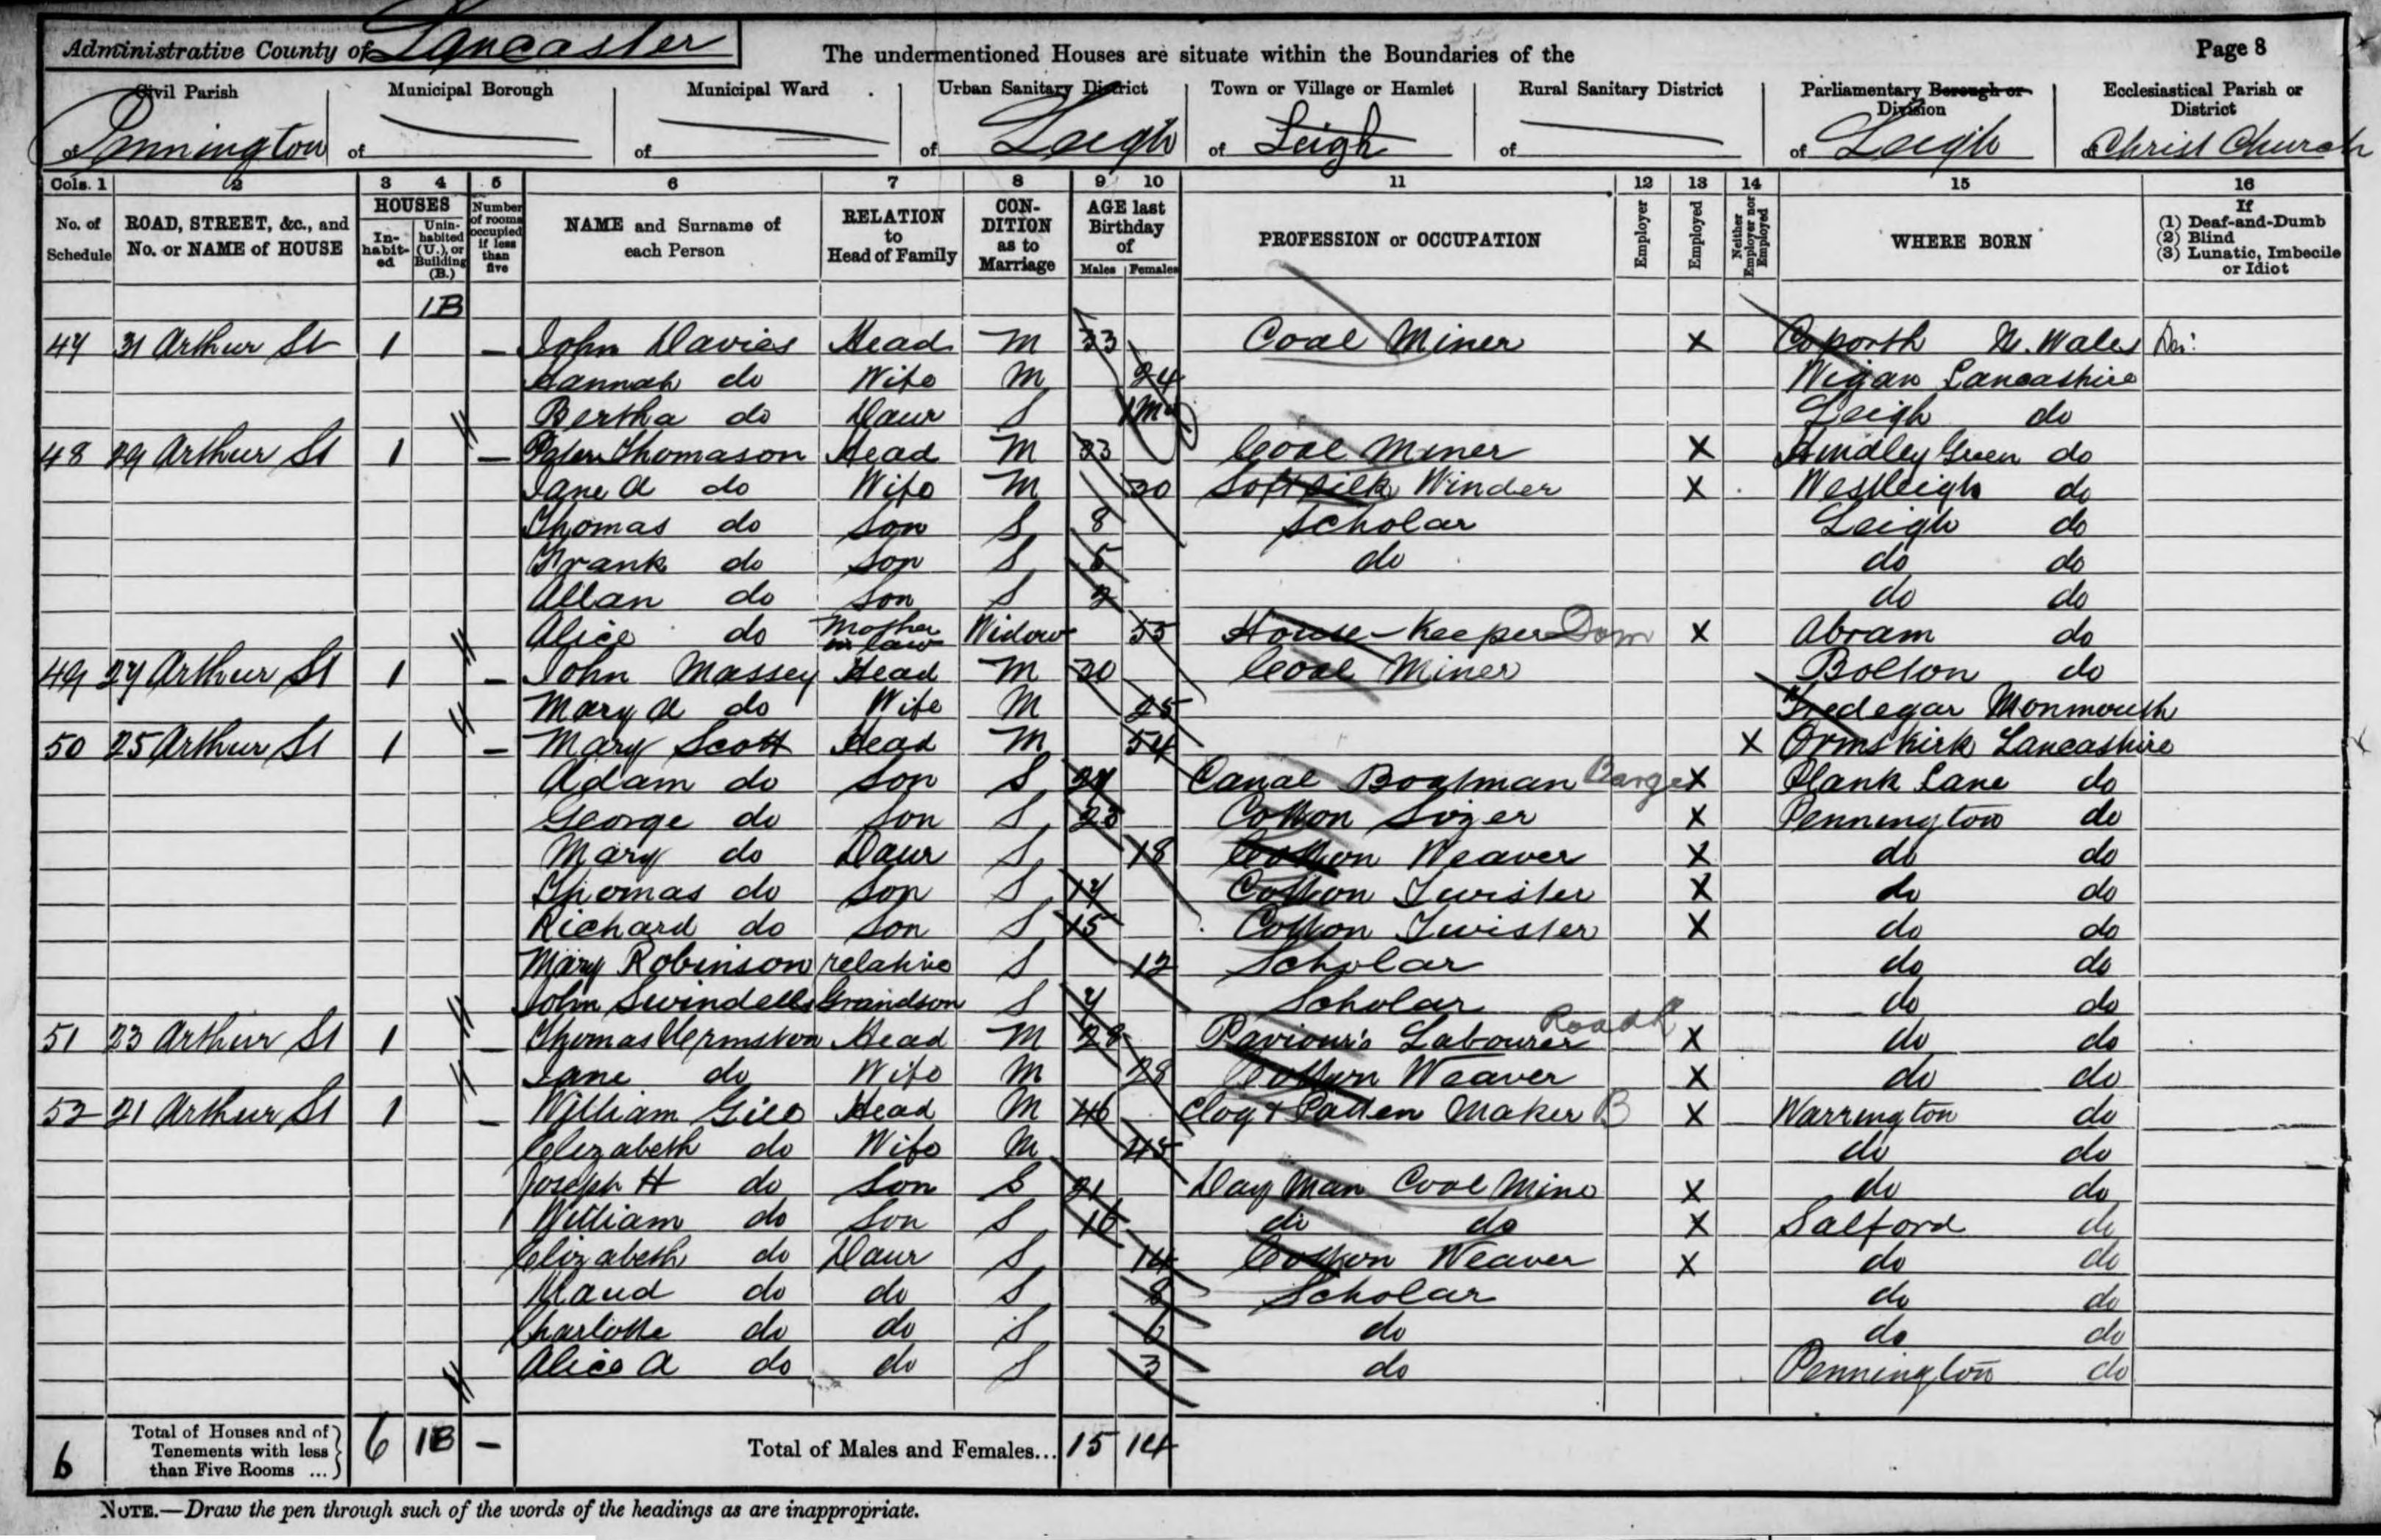 Administrative County of Lancaster The undermentioned Houses are situate within the Boundaries of the Page 8
Civil Parish Municipal Borough Municipal Ward Urban Sanitary District Town or Village or Hamlet Rural Sanitary District Parliamentary Borough or Division Ecclesiastical Parish or District
of Pennington of of of Leigh of Leigh of of Leigh of Christ Church
Cols. 1 2 3 4 5 6 7 8 9 10 11 12 13 14 15 16
No. of Schedule ROAD, STREET, &c., and No. or NAME of HOUSE HOUSES Inhabited Uninhabited (U.), or Building (B.) Number of rooms occupied if less than five NAME and Surname of each Person RELATION to Head of Family CONDITION as to Marriage AGE last Birthday of Males Females PROFESSION or OCCUPATION Employer Employed Neither Employer nor Employed WHERE BORN If (1) Deaf-and-Dumb (2) Blind (3) Lunatic, Imbecile or Idiot
1B
47 31 Arthur St 1 – John Davies Head M 33 Coal Miner X N. Wales
Hannah do Wife M 24 Wigan Lancashire
Bertha do Daur S 1 Mo Leigh do
48 29 Arthur St 1 – Peter Thomason Head M 33 Coal Miner X Hindley Green do
Jane A do Wife M 30 Soft Silk Winder X Westleigh do
Thomas do Son S 8 Scholar Leigh do
Frank do Son S 5 do do do
Allan do Son S 2 do do
Alice do Mother in law Widow 55 House-Keeper Dom X Abram do
49 27 Arthur St 1 – John Massey Head M 30 Coal Miner Bolton do
Mary A do Wife M 25 Tredegar Monmouth
50 25 Arthur St 1 – Mary Scott Head M 54 X Ormskirk Lancashire
Adam do Son S Canal Boatman Barge X Plank Lane do
George do Son S 23 Cotton Sizer X Pennington do
Mary do Daur S 18 Cotton Weaver X do do
Thomas do Son S 17 Cotton Twister X do do
Richard do Son S 15 Cotton Twister X do do
Mary Robinson relative S 12 Scholar do do
John Swindells Grandson S 7 Scholar do do
51 23 Arthur St 1 – Thomas Urmston Head M 28 Paviour's Labourer Road X do do
Jane do Wife M 28 Cotton Weaver X do do
52 21 Arthur St 1 – William Gill Head M 46 Clog & Patten Maker B X Warrington do
Elizabeth do Wife M 45 do do
Joseph H do Son S 21 Day Man Coal Mine X do do
William do Son S 16 do do X Salford do
Elizabeth do Daur S 14 Cotton Weaver X do do
Maud do do S 8 Scholar do do
Charlotte do do S 6 do do do
Alice A do do S 3 do Pennington do
6 Total of Houses and of Tenements with less than Five Rooms ... 6 1B – Total of Males and Females... 15 14
NOTE.—Draw the pen through such of the words of the headings as are inappropriate.